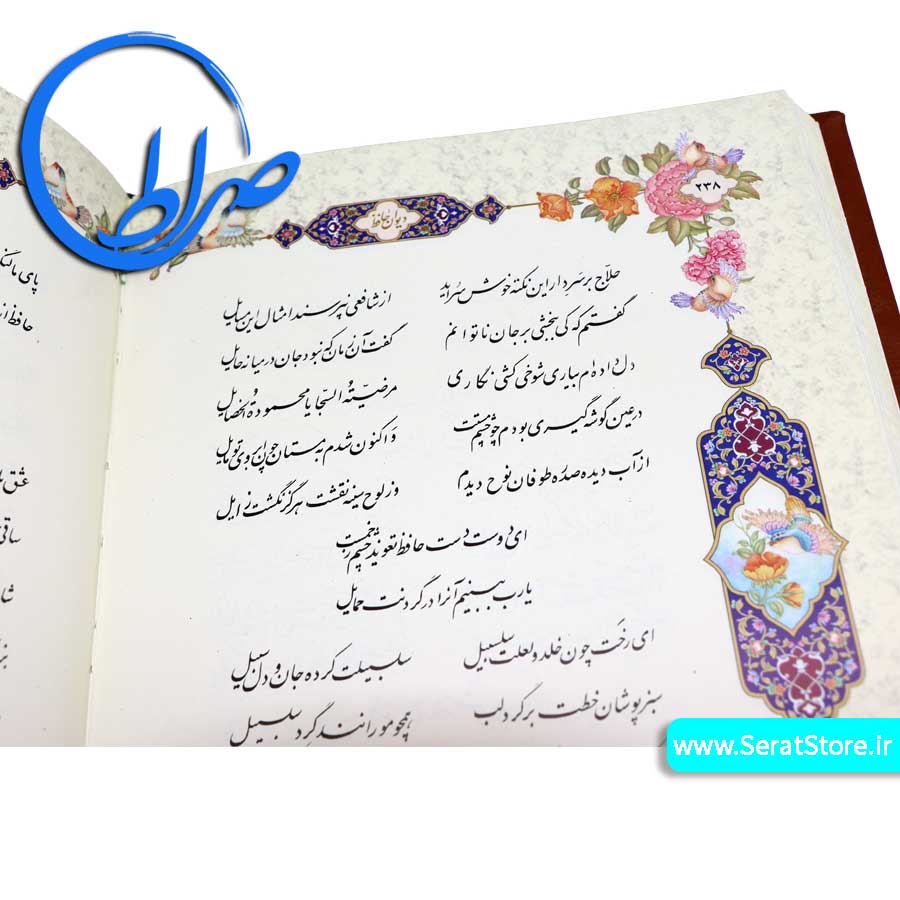 صراط
۲۳۸
دیوان حافظ
حلاج بر سر دار این نکته خوش سراید از شافعی نپرسند امثال این مسایل
گفتم که کی ببخشی بر جان ناتوانم گفت آن زمان که نبود جان در میانه حایل
دل داده‌ام به یاری شوخی کشی نگاری مرضیّة السجایا محمودة الخصایل
در عین گوشه گیری بودم چو چشم مستت و اکنون شدم به مستان چون ابروی تو مایل
از آب دیده صد ره طوفان نوح دیدم وز لوح سینه نقشت هرگز نگشت زایل
ای دوست دست حافظ تعویذ چشم زخمست
یارب ببینم آنرا در گردنت حمایل
ای رخت چون خلد و لعلت سلسبیل سلسبیلت کرده جان و دل سبیل
سبز پوشان خطت بر گرد لب همچو مورانند گرد سلسبیل
پای ما
حافظ از
عشق
ساقی
www.SeratStore.ir